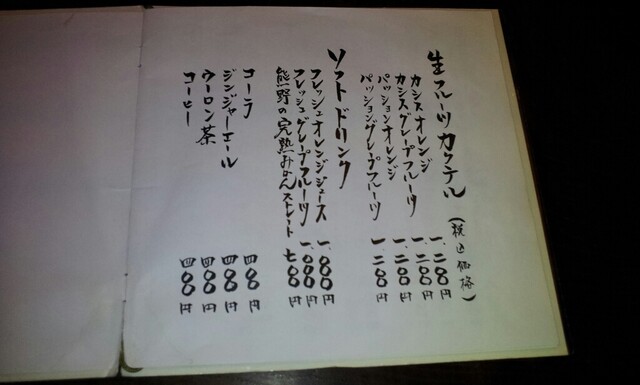 生フルーツカクテル（税込価格）
カシスオレンジ 一、二〇〇円
カシスグレープフルーツ 一、二〇〇円
パッションオレンジ 一、二〇〇円
パッショングレープフルーツ 一、二〇〇円
ソフトドリンク
フレッシュオレンジジュース 一、〇〇〇円
フレッシュグレープフルーツ 一、〇〇〇円
熊野の完熟みかんストレート 七〇〇円
コーラ 四〇〇円
ジンジャーエール 四〇〇円
ウーロン茶 四〇〇円
コーヒー 四〇〇円